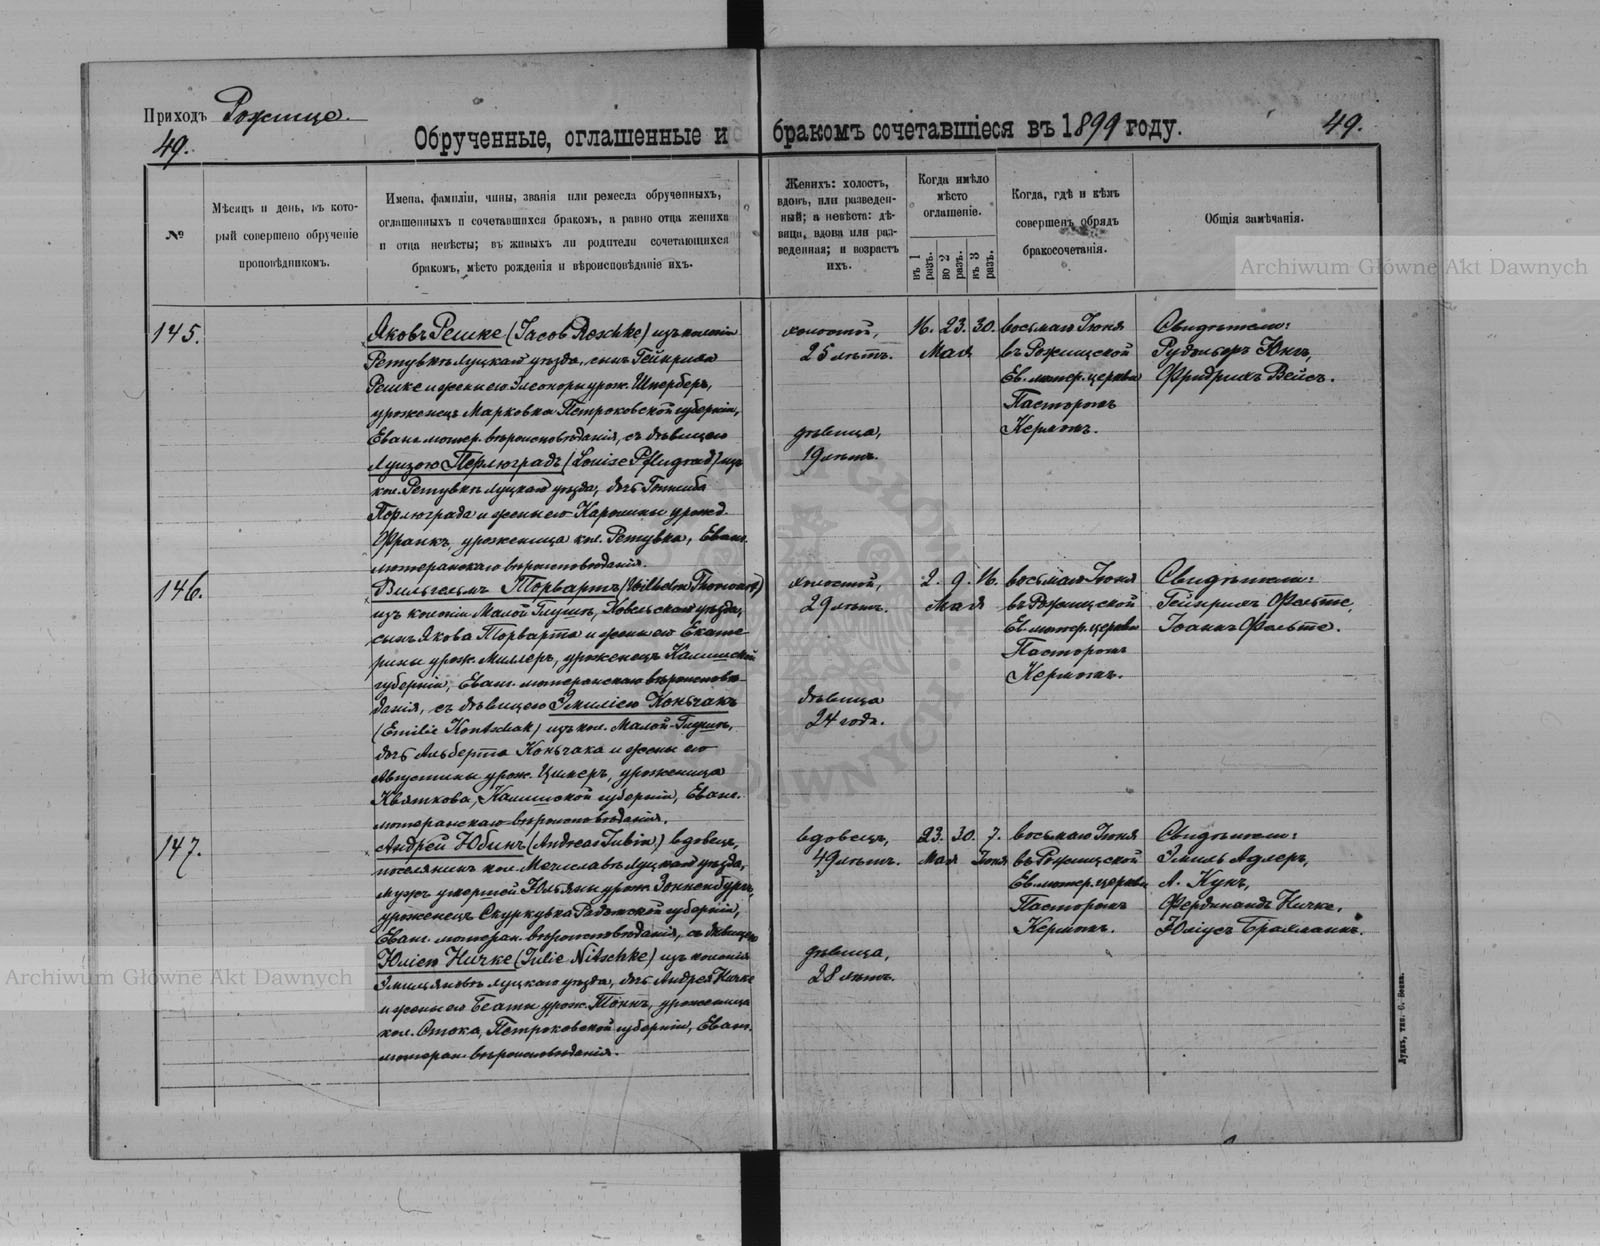 Приходъ Рожище.
49.
Обрученные, оглашенные и бракомъ сочетавшіеся въ 1899 году.
49.
№
Мѣсяцъ и день, въ кото-
рый совершено обрученіе
проповѣдникомъ.
Имена, фамиліи, чины, званія или ремесла обрученныхъ,
оглашенныхъ и сочетавшихся бракомъ, а равно отца жениха
и отца невѣсты; въ живыхъ ли родители сочетающихся
бракомъ, мѣсто рожденія и вѣроисповѣданіе ихъ.
Женихъ: холостъ,
вдовъ, или разведен-
ный; а невѣста: дѣ-
вица, вдова или раз-
веденная; и возрастъ
ихъ.
Когда имѣло
мѣсто
оглашеніе.
въ 1 разъ.
во 2 разъ.
въ 3 разъ.
Когда, гдѣ и кѣмъ
совершенъ обрядъ
бракосочетанія.
Общія замѣчанія.
145.
Яковъ Решке (Jacob Reschke) изъ колоніи
Ретувкѣ Луцкаго уѣзда, сынъ Гейнриха
Решке и жены его Элеоноры урож. Шперберъ,
уроженецъ Марковка Петроковской губерніи,
Еванг. лютер. вѣроисповѣданія, съ дѣвицею
Луизою Пфлюградъ (Louise Pflugrad) изъ
кол. Ретувкѣ Луцкаго уѣзда, дочь Готлиба
Пфлюграда и жены его Каролины урожд.
Франкъ, уроженица кол. Ретувка, Еванг.
лютеранскаго вѣроисповѣданія.
холостой,
25 лѣтъ.
дѣвица,
19 лѣтъ.
16. 23. 30.
Мая
восьмаго Іюня
въ Рожищской
Ев. лютер. церкви
Пасторомъ
Кермомъ.
Свидѣтели:
Рудольфъ Юнгъ,
Фридрихъ Вейсъ.
146.
Вильгельмъ Торвартъ (Wilhelm Thorwart)
изъ колоніи Малой Глушѣ, Ковельскаго уѣзда,
сынъ Якова Торварта и жены его Екате-
рины урож. Миллеръ, уроженецъ Калишской
губерніи, Еванг. лютеранскаго вѣроисповѣ-
данія, съ дѣвицею Эмиліею Кончакъ
(Emilie Kontschak) изъ кол. Малой-Глушѣ,
дочь Альберта Кончака и жены его
Августины урож. Цимеръ, уроженица
Квяткова, Калишской губерніи, Еванг.
лютеранскаго вѣроисповѣданія.
холостой,
29 лѣтъ.
дѣвица
24 года.
2. 9. 16.
Мая
восьмаго Іюня
въ Рожищской
Ев. лютер. церкви
Пасторомъ
Кермомъ.
Свидѣтели:
Гейнрихъ Фольте,
Іоганъ Фольте.
147.
Андрей Юбинъ (Andreas Jubin) вдовецъ,
поселянинъ кол. Мечиславъ Луцкаго уѣзда,
мужъ умершей Юльяны урож. Зонненбургъ,
уроженецъ Скуркувка Радомской губерніи,
Еванг. лютеран. вѣроисповѣданія, съ дѣвицею
Юліею Ничке (Julie Nitschke) изъ колоніи
Эмильяновкѣ Луцкаго уѣзда, дочь Андрея Ничке
и жены его Беаты урож. Тоннъ, уроженица
кол. Отока, Петроковской губерніи, Еванг.
лютеран. вѣроисповѣданія.
вдовецъ,
49 лѣтъ.
дѣвица,
28 лѣтъ.
23. 30. 7.
Мая Іюня
восьмаго Іюня
въ Рожищской
Ев. лютер. церкви
Пасторомъ
Кермомъ.
Свидѣтели:
Эмиль Адлеръ,
А. Кунъ,
Фердинандъ Ничке,
Юліусъ Брахманъ.
Archiwum Główne Akt Dawnych
Archiwum Główne Akt Dawnych